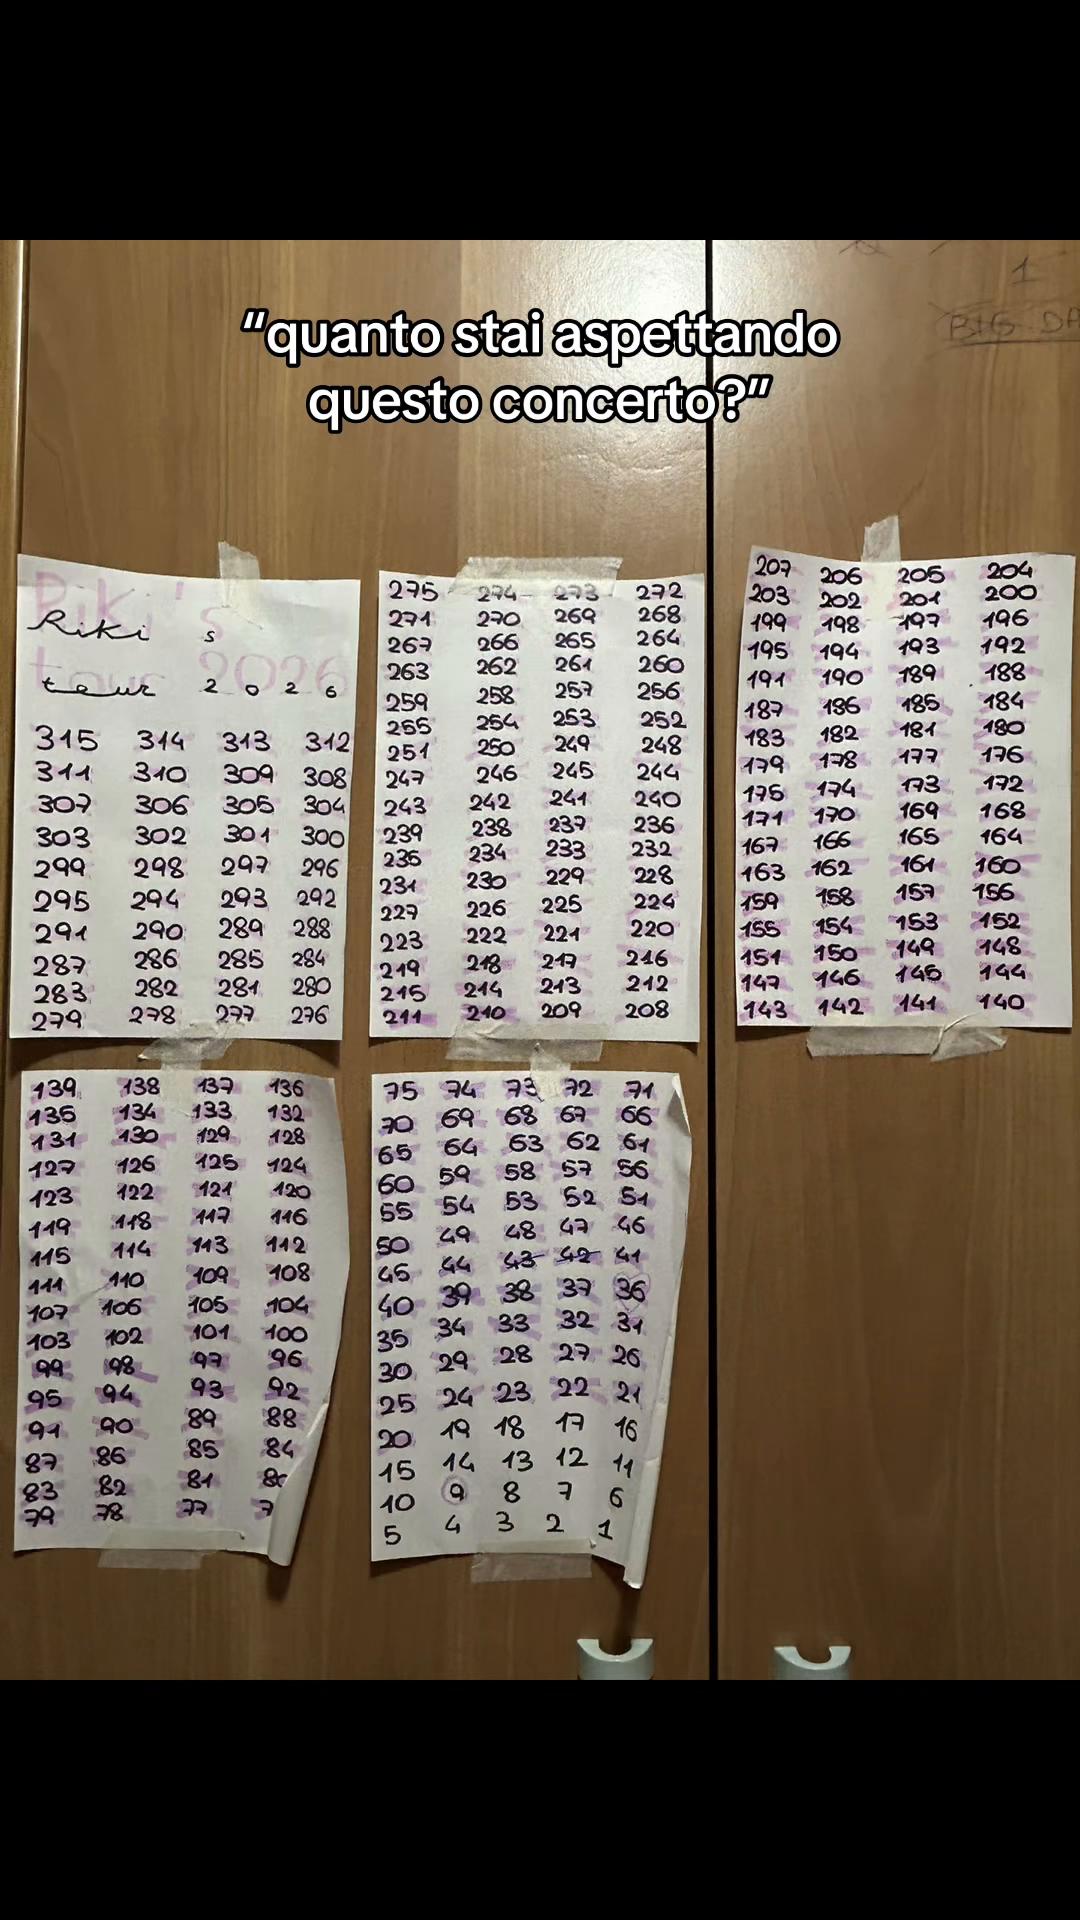 “quanto stai aspettando
questo concerto?”
1
BIG DA
Riki's
tour 2026
Riki s
tour 2026
315 314 313 312
311 310 309 308
307 306 305 304
303 302 301 300
299 298 297 296
295 294 293 292
291 290 289 288
287 286 285 284
283 282 281 280
279 278 277 276
275 274 273 272
271 270 269 268
267 266 265 264
263 262 261 260
259 258 257 256
255 254 253 252
251 250 249 248
247 246 245 244
243 242 241 240
239 238 237 236
235 234 233 232
231 230 229 228
227 226 225 224
223 222 221 220
219 218 217 216
215 214 213 212
211 210 209 208
207 206 205 204
203 202 201 200
199 198 197 196
195 194 193 192
191 190 189 188
187 186 185 184
183 182 181 180
179 178 177 176
175 174 173 172
171 170 169 168
167 166 165 164
163 162 161 160
159 158 157 156
155 154 153 152
151 150 149 148
147 146 145 144
143 142 141 140
139 138 137 136
135 134 133 132
131 130 129 128
127 126 125 124
123 122 121 120
119 118 117 116
115 114 113 112
111 110 109 108
107 106 105 104
103 102 101 100
99 98 97 96
95 94 93 92
91 90 89 88
87 86 85 84
83 82 81 80
79 78 77 7
75 74 73 72 71
70 69 68 67 66
65 64 63 62 61
60 59 58 57 56
55 54 53 52 51
50 49 48 47 46
45 44 43 42 41
40 39 38 37 36
35 34 33 32 31
30 29 28 27 26
25 24 23 22 21
20 19 18 17 16
15 14 13 12 11
10 9 8 7 6
5 4 3 2 1